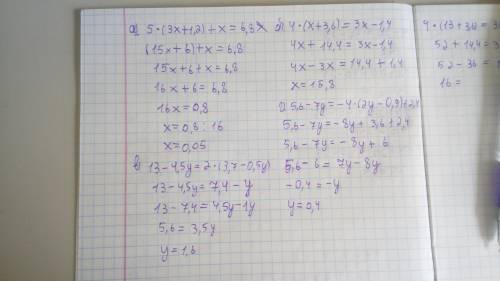 а) 5·(3x+1,2)+x=6,8x
(15x+6)+x=6,8
15x+6+x=6,8
16x+6=6,8
16x=0,8
x=0,8:16
x=0,05
в) 13-4,5y=2·(3,7-0,5y)
13-4,5y=7,4-y
13-7,4=4,5y-1y
5,6=3,5y
y=1,6
б) 4·(x+3,6)=3x-1,4
4x+14,4=3x-1,4
4x-3x=14,4+1,4
x=15,8
г) 5,6-7y=-4·(2y-0,9)+2,4
5,6-7y=-8y+3,6+2,4
5,6-7y=-8y+6
5,6-6=7y-8y
-0,4=-y
y=0,4
4·(13+3,6)=3
52+14,4=3
52-36=
16=